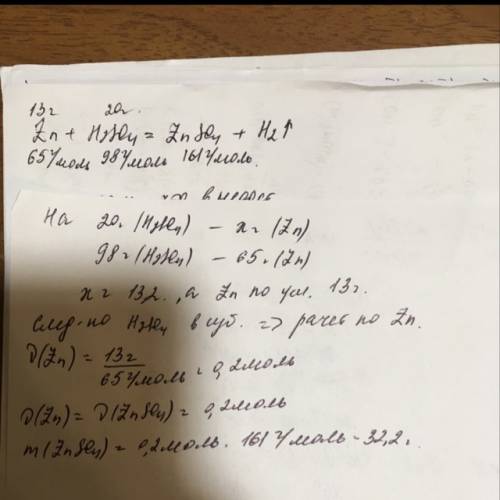 13г 20г.
Zn + H2SO4 = ZnSO4 + H2↑
65г/моль 98г/моль 161г/моль.
На 20г (H2SO4) – xг (Zn)
98г (H2SO4) – 65г (Zn)
x = 13,2., а Zn по усл. 13г.
след-но H2SO4 в изб. => расчет по Zn.
ν(Zn) = 13г / 65г/моль = 0,2моль
ν(Zn) = ν(ZnSO4) = 0,2моль
m(ZnSO4) = 0,2моль · 161г/моль = 32,2г.